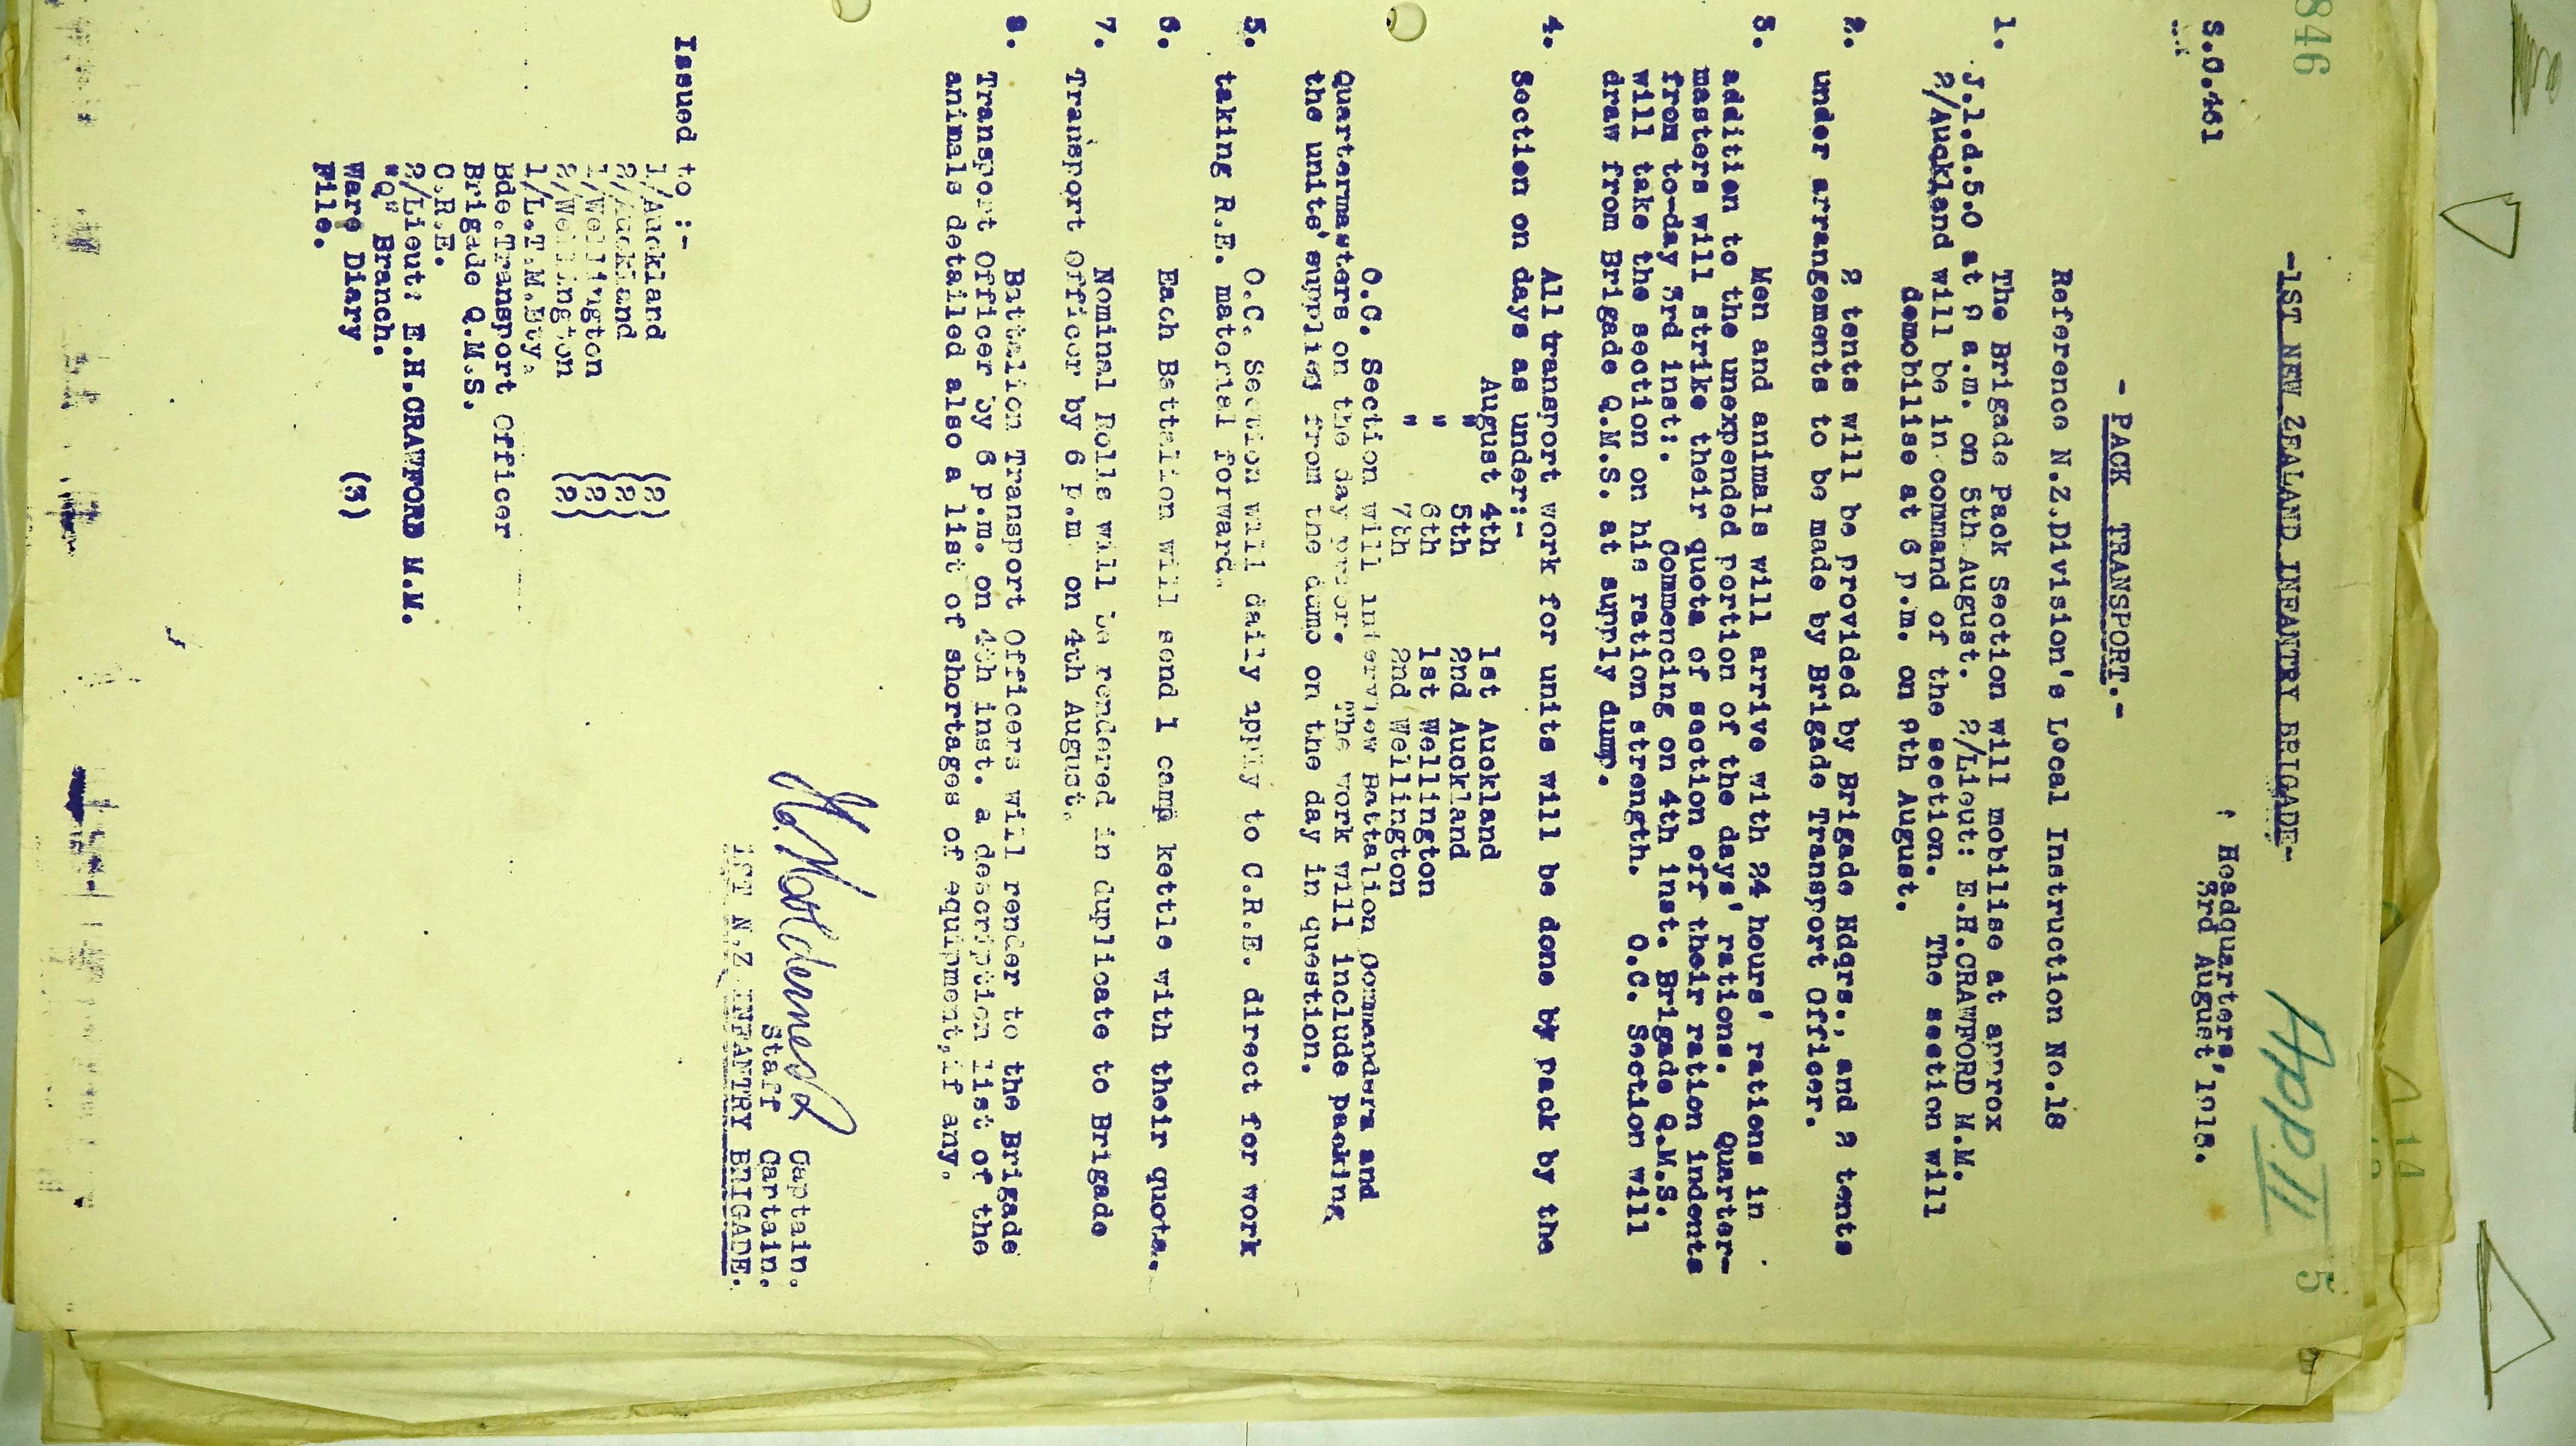 846
App II 5
-1ST NEW ZEALAND INFANTRY BRIGADE-
S.C.461
Headquarters,
3rd August,1918.
- PACK TRANSPORT.-
Reference N.Z.Division's Local Instruction No.18
1. The Brigade Pack Section will mobilise at approx
J.1.d.5.0 at 9 a.m. on 5th August. 2/Lieut: E.H.CRAWFORD M.M.
2/Auckland will be in command of the section. The section will
demobilise at 6 p.m. on 9th August.
2. 2 tents will be provided by Brigade Hdqrs., and 2 tents
under arrangements to be made by Brigade Transport Officer.
3. Men and animals will arrive with 24 hours' rations in
addition to the unexpended portion of the days' rations. Quarter-
masters will strike their quota of section off their ration indents
from to-day 3rd inst:. Commencing on 4th inst. Brigade Q.M.S.
will take the section on his ration strength. O.C. Section will
draw from Brigade Q.M.S. at supply dump.
4. All transport work for units will be done by pack by the
Section on days as under:-
August 4th 1st Auckland
" 5th 2nd Auckland
" 6th 1st Wellington
" 7th 2nd Wellington
O.C. Section will interview Battalion Commanders and
Quartermasters on the day prior. The work will include packing
the units' supplies from the dump on the day in question.
5. O.C. Section will daily apply to C.R.E. direct for work
taking R.E. material forward.
6. Each Battalion will send 1 camp kettle with their quota.
7. Nominal Rolls will be rendered in duplicate to Brigade
Transport Officer by 6 p.m on 4th August.
8. Battalion Transport Officers will render to the Brigade
Transport Officer by 6 p.m. on 4th inst. a description list of the
animals detailed also a list of shortages of equipment,if any.
Captain.
Staff Captain.
1ST N.Z INFANTRY BRIGADE.
Issued to :-
1/Auckland (2)
2/Auckland (2)
1/Wellington (2)
2/Wellington (2)
1/L.T.M.Bty.
Bde.Transport Officer
Brigade Q.M.S.
C.R.E.
2/Lieut: E.H.CRAWFORD M.M.
"Q" Branch.
Ware Diary (3)
File.